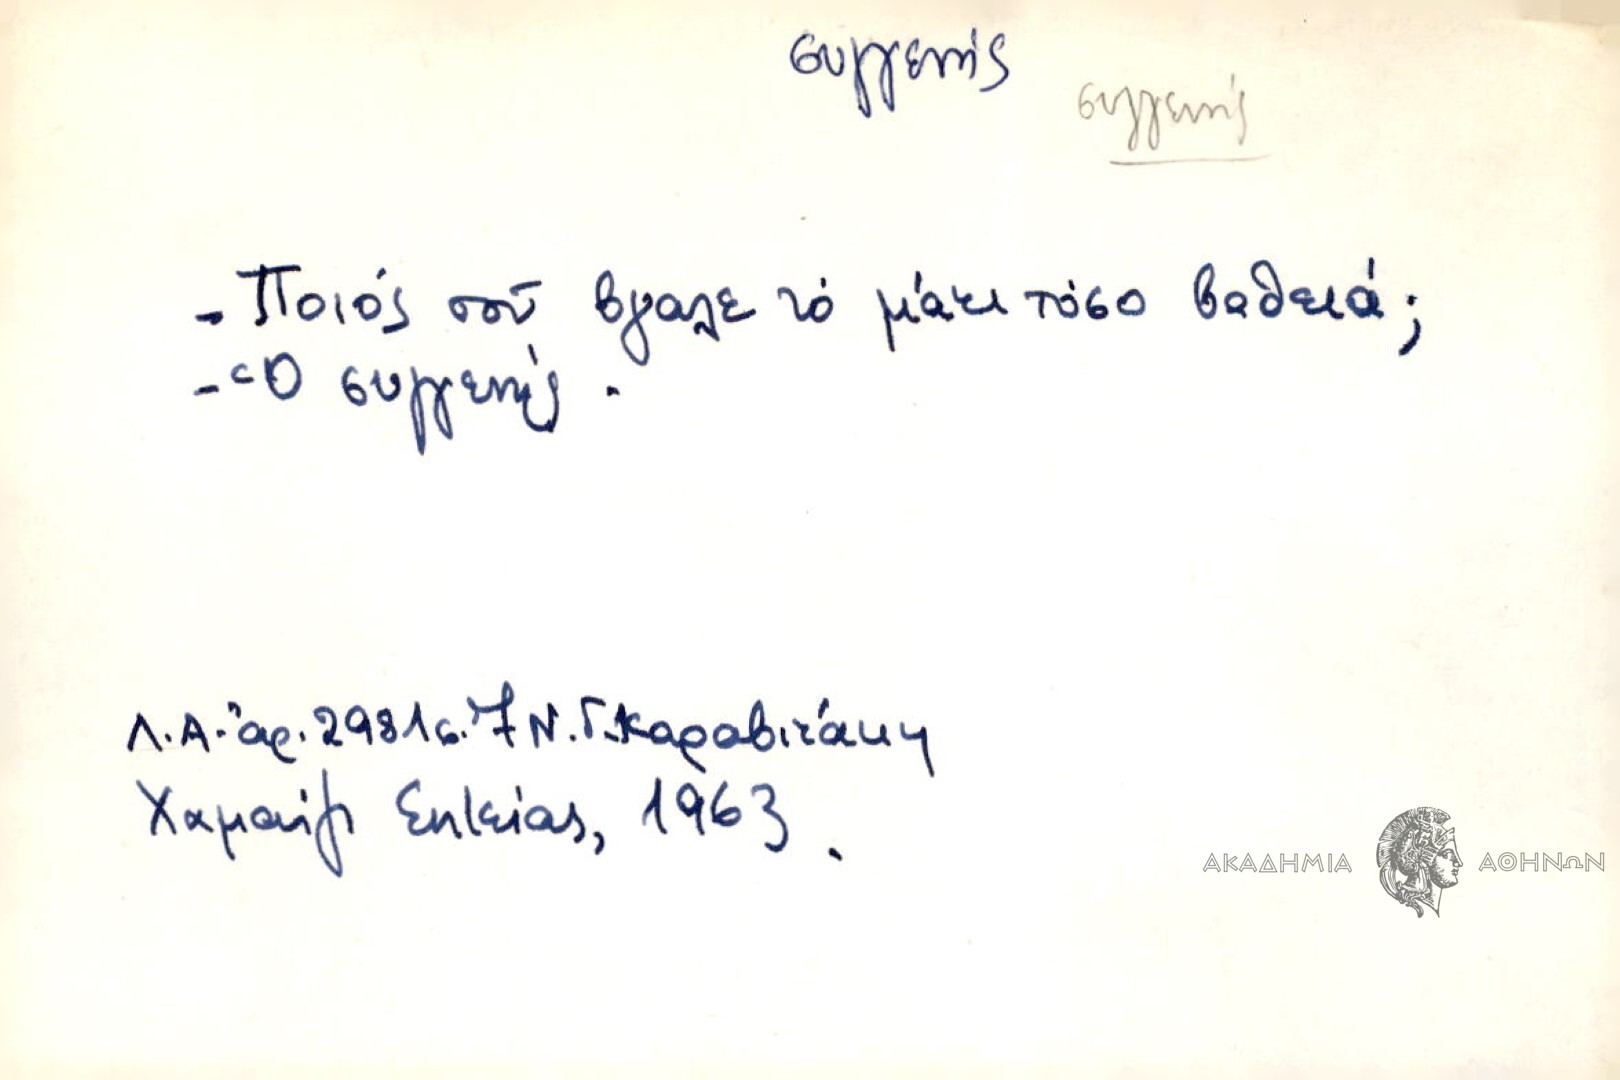 συγγενής
συγγενής
- Ποιός σοῦ βγαλε τό μάτι τόσο βαθειά;
- Ὁ συγγενής.
Λ.Α. ἀρ. 2981 σ. 7 Ν. Γ. Καραβιτάκη
Χαμαίζι Σητείας, 1963.
ΑΚΑΔΗΜΙΑ ΑΘΗΝΩΝ